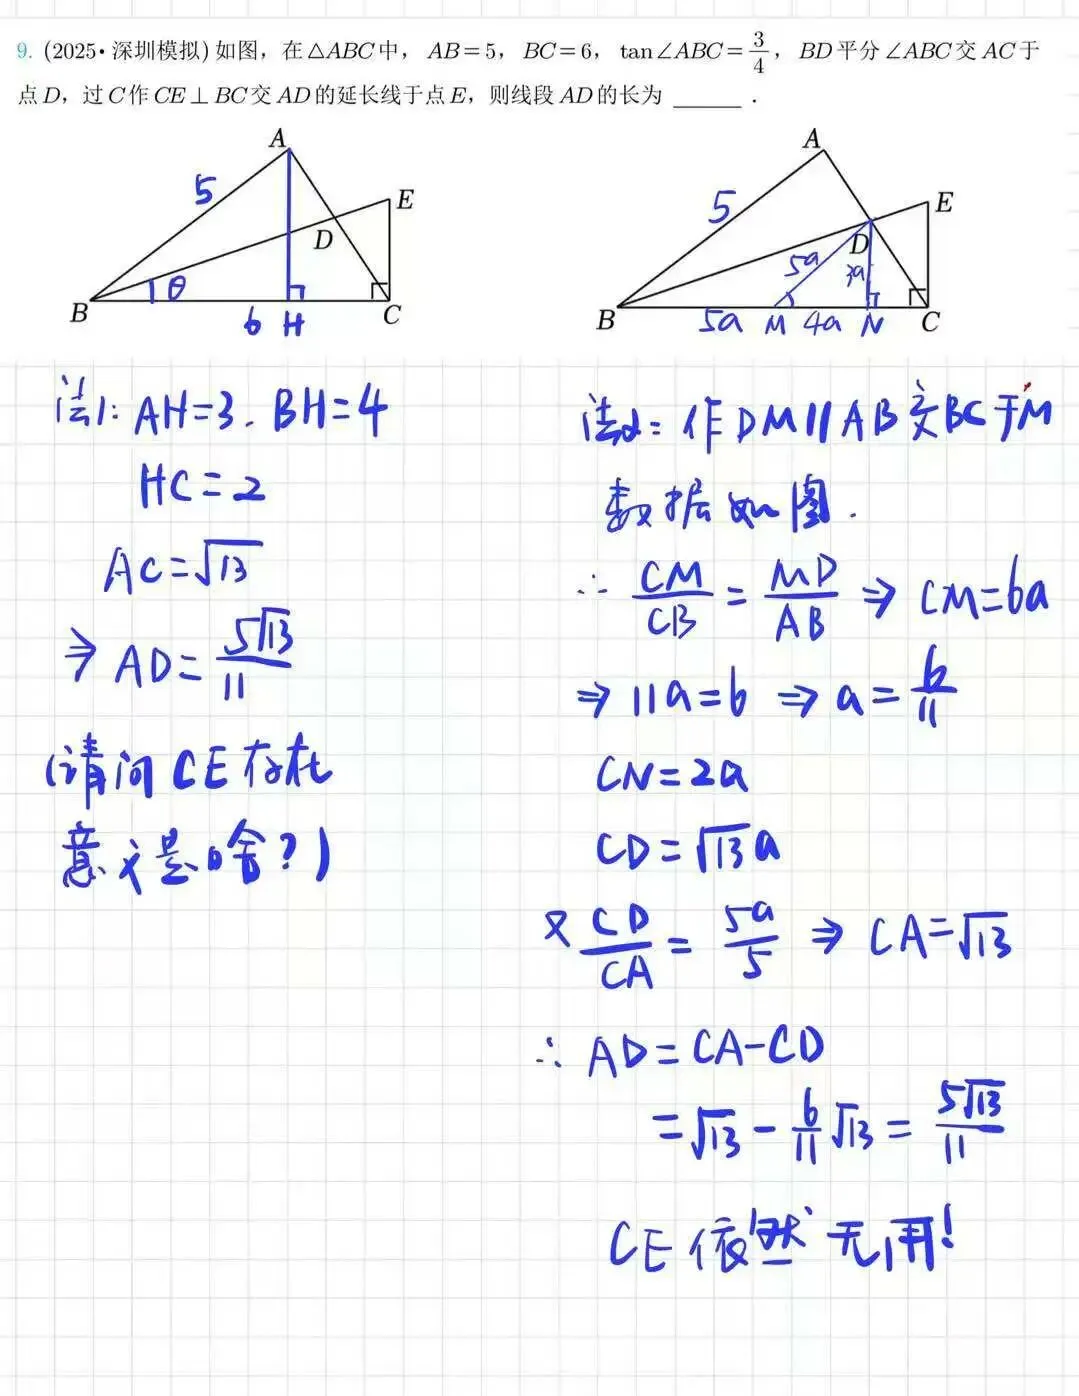 9. (2025·深圳模拟) 如图，在△ABC中，AB=5，BC=6，tan∠ABC=3/4，BD平分∠ABC交AC于
点D，过C作CE⊥BC交AD的延长线于点E，则线段AD的长为 ______ .
A
5
E
D
B
θ
6 H
C
A
5
E
D
5a
3a
B
5a M 4a N
C
法1: AH=3. BH=4
HC=2
AC=√13
⇒ AD=5√13/11
(请问CE存在
意义是啥?)
法2: 作DM∥AB交BC于M
数据如图.
∴ CM/CB = MD/AB ⇒ CM=6a
⇒ 11a=6 ⇒ a=6/11
CN=2a
CD=√13a
又 CD/CA = 5a/5 ⇒ CA=√13
∴ AD=CA-CD
=√13-6/11√13=5√13/11
CE依然无用!